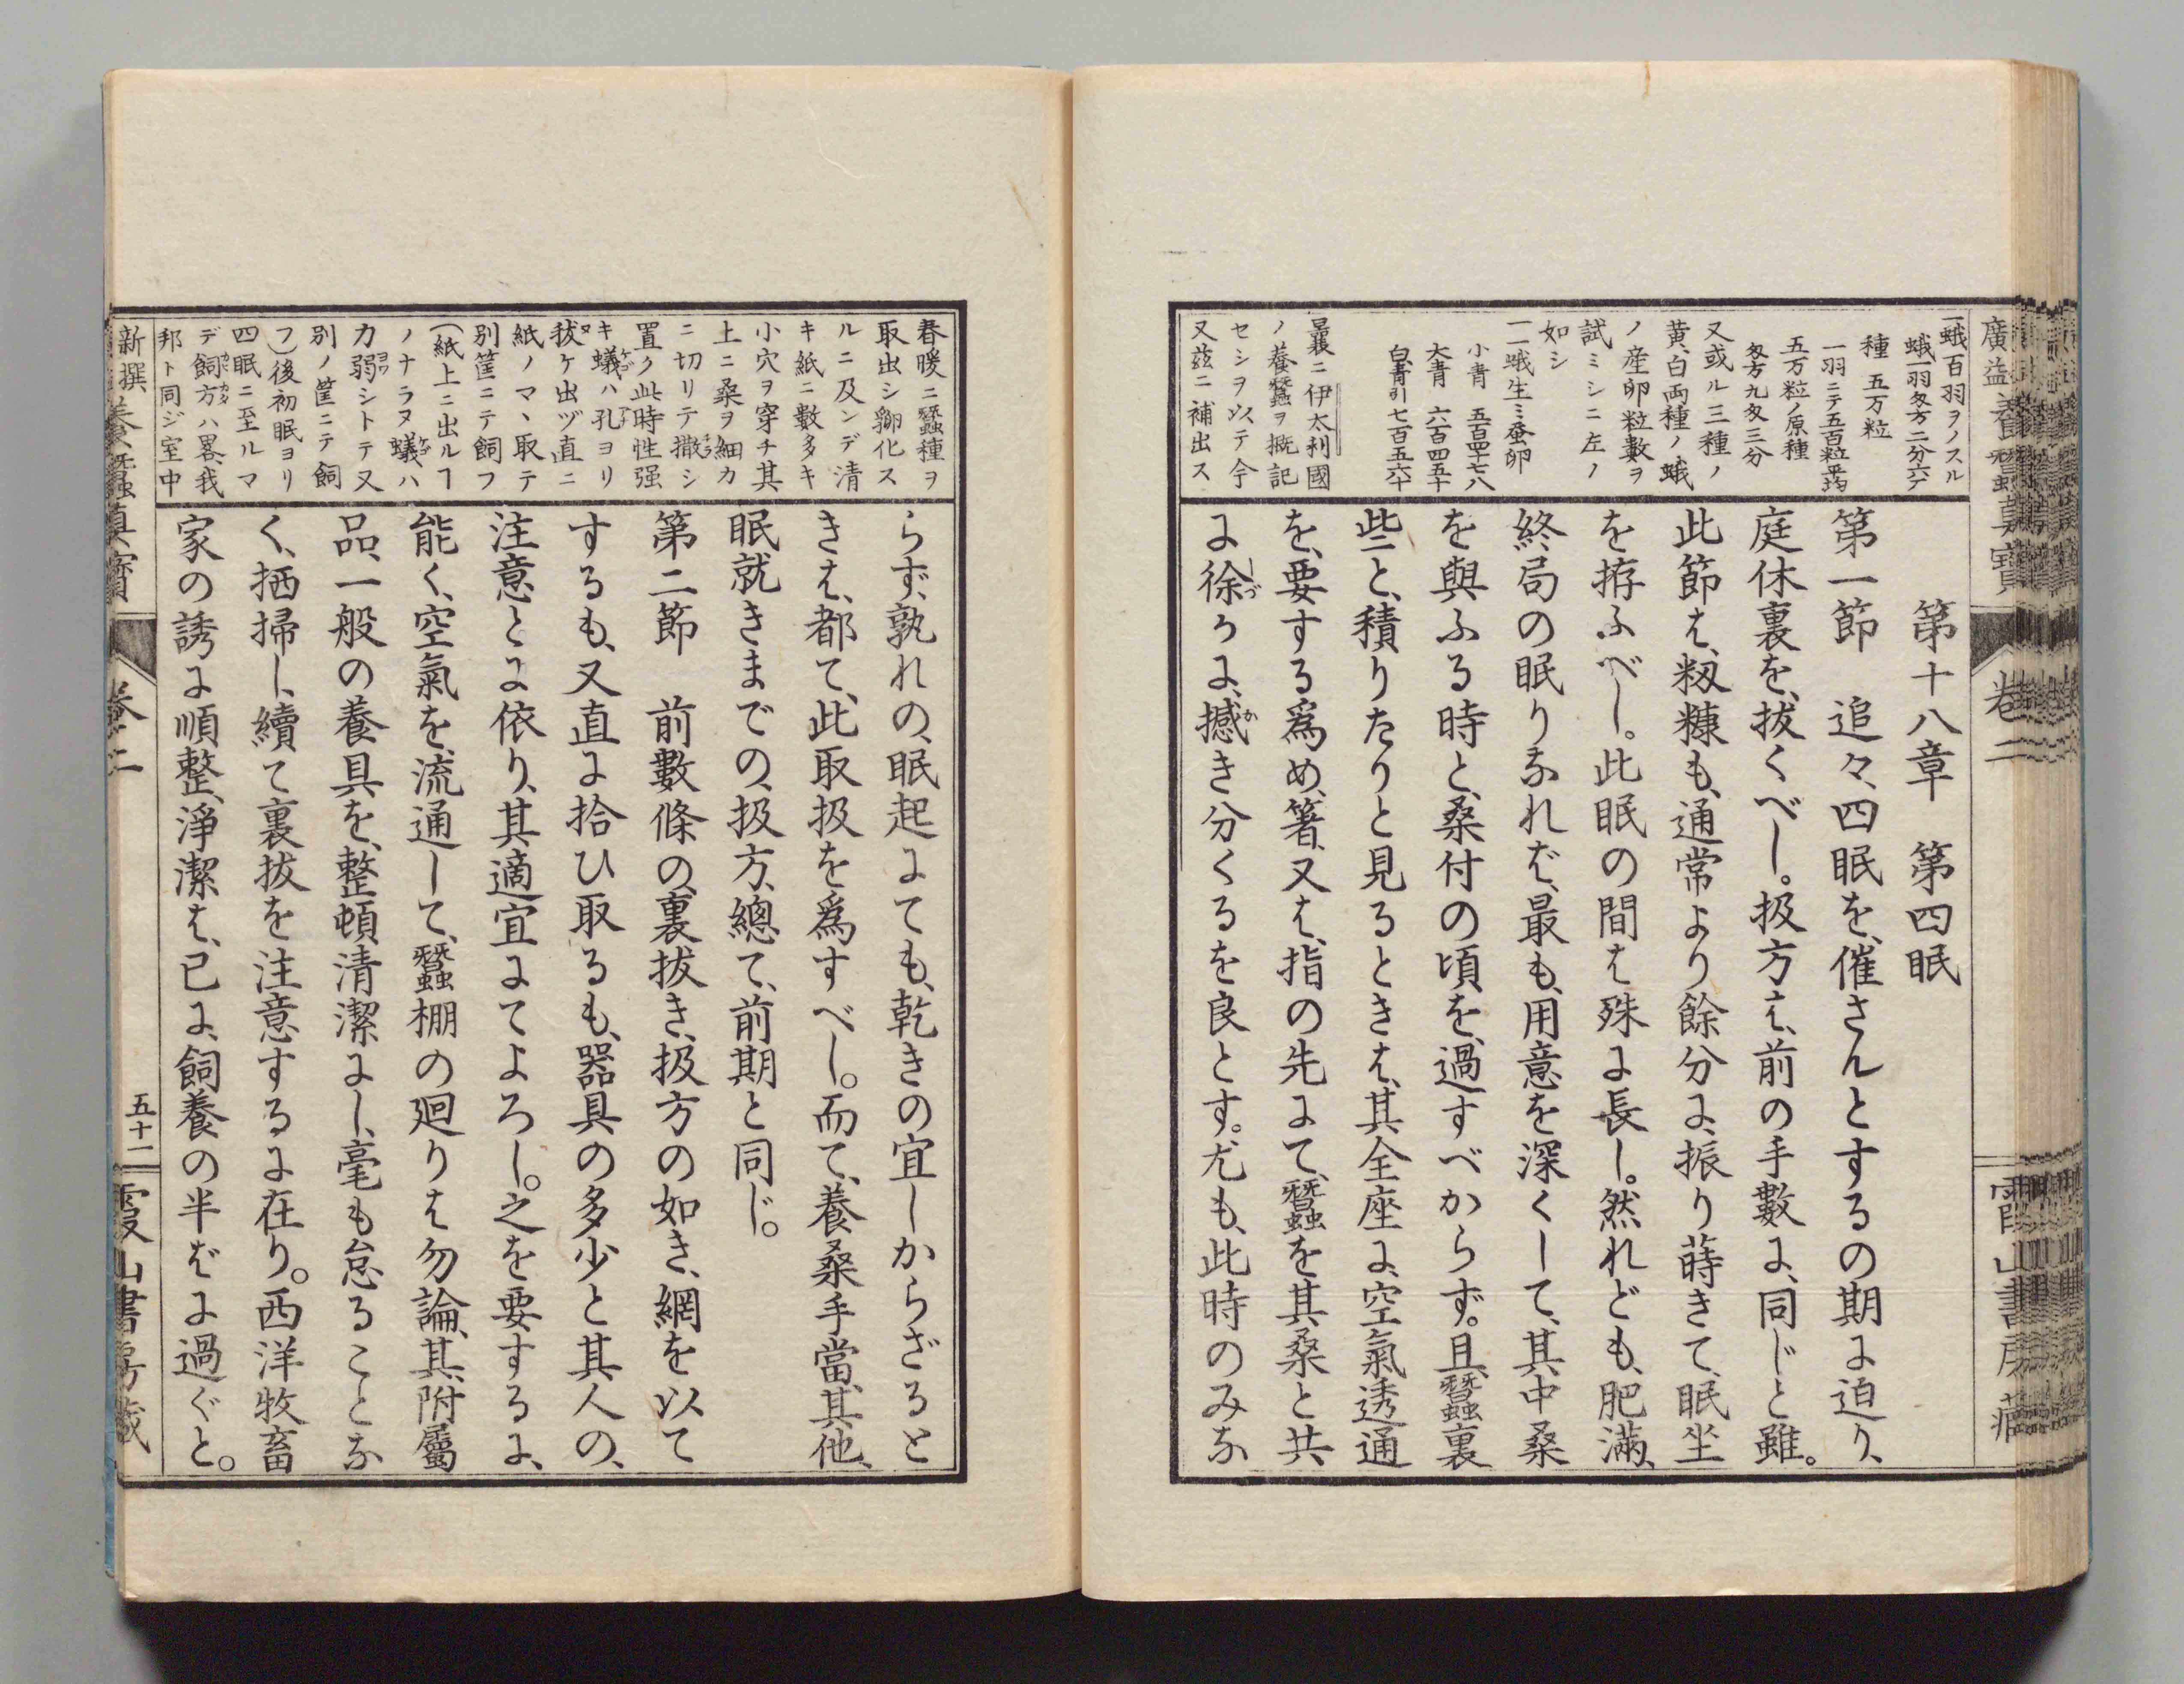 廣益養蠶真寶
卷二
霞山書房藏
一蛾百羽ヲノスル
蛾一羽匁方二分六厘
種 五万粒
一羽ニテ五百粒平均
五万粒ノ原種
匁方九匁三分
又或ル三種ノ
黄、白両種ノ蛾
ノ産卵粒數ヲ
試ミシニ左ノ
如シ
一一蛾生ミ蚕卵
小青 五百四十七八
大青 六百四五十
白青引 七百五六十
曩ニ伊太利國
ノ養蠶ヲ摡記
セシヲ以テ今
又茲ニ補出ス
第十八章 第四眠
第一節 追々、四眠を、催さんとするの期に迫り、
庭休裏を、拔くべし。扱方は、前の手數に、同じと雖。
此節は、籾糠も、通常より餘分に、振り蒔きて、眠坐
を拵ふべし。此眠の間は殊に長し。然れども、肥滿、
終局の眠りなれば、最も、用意を深くして、其中桑
を與ふる時と、桑付の頃を、過すべからず。且、蠶裏
些と、積りたりと見るときは、其全座に、空氣透通
を、要する爲め、箸、又は、指の先にて、蠶を、其桑と共
に徐かに、撼き分くるを良とす。尤も、此時のみな
春暖ニ蠶種ヲ
取出シ孵化ス
ルニ及ンデ清
キ紙ニ數多キ
小穴ヲ穿チ其
上ニ桑ヲ細カ
ニ切リテ撒シ
置ク此時性强
キ蟻ハ孔ヨリ
拔ケ出ヅ直ニ
紙ノマヽ取テ
別筐ニテ飼フ
(紙上ニ出ルヿ
ノナラヌ蟻ハ
力弱シトテ又
別ノ筐ニテ飼
フ)後初眠ヨリ
四眠ニ至ルマ
デ飼方ハ畧、我
邦ト同ジ室中
らず、孰れの、眠起にても、乾きの宜しからざると
きは、都て、此取扱を爲すべし。而て、養桑手當、其他、
眠就きまでの、扱方、總て、前期と同じ。
第二節 前數條の、裏拔き、扱方の如き、網を以て
するも、又直に拾ひ取るも、器具の多少と其人の、
注意とに依り、其適宜にてよろし。之を要するに、
能く、空氣を、流通して、蠶棚の廻りは勿論、其、附屬
品、一般の養具を、整頓清潔にし、毫も怠ることな
く、栖掃し、續て裏拔を注意するに在り。西洋牧畜
家の誘に順整、淨潔は、已に、飼養の半ばに過ぐと。
新撰養蠶真寶
卷二
五十二
霞山書房藏